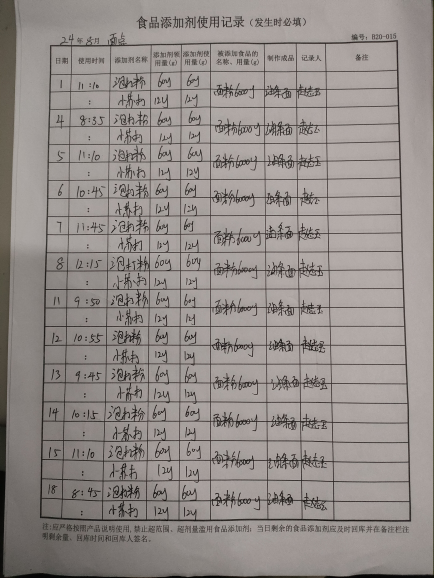 食品添加剂使用记录（发生时必填）
24年8月 面点 编号：B20-015
日期 使用时间 添加剂名称 添加剂领用量(g) 添加剂使用量(g) 被添加食品的名称、用量(g) 制作成品 记录人 备注
1 11:10 泡打粉 60g 60g 面粉6000g 油条面
: 小苏打 12g 12g
4 8:35 泡打粉 60g 60g 面粉6000g 油条面
: 小苏打 12g 12g
5 11:10 泡打粉 60g 60g 面粉6000g 油条面
: 小苏打 12g 12g
6 10:45 泡打粉 60g 60g 面粉6000g 油条面
: 小苏打 12g 12g
7 11:45 泡打粉 60g 60g 面粉6000g 油条面
: 小苏打 12g 12g
8 12:15 泡打粉 60g 60g 面粉6000g 油条面
: 小苏打 12g 12g
11 9:50 泡打粉 60g 60g 面粉6000g 油条面
: 小苏打 12g 12g
12 10:55 泡打粉 60g 60g 面粉6000g 油条面
: 小苏打 12g 12g
13 9:45 泡打粉 60g 60g 面粉6000g 油条面
: 小苏打 12g 12g
14 10:15 泡打粉 60g 60g 面粉6000g 油条面
: 小苏打 12g 12g
15 11:10 泡打粉 60g 60g 面粉6000g 油条面
: 小苏打 12g 12g
18 8:45 泡打粉 60g 60g 面粉6000g 油条面
: 小苏打 12g 12g
注:应严格按照产品说明使用,禁止超范围、超剂量滥用食品添加剂；当日剩余的食品添加剂应及时回库并在备注栏注
明剩余量、回库时间和回库人签名。